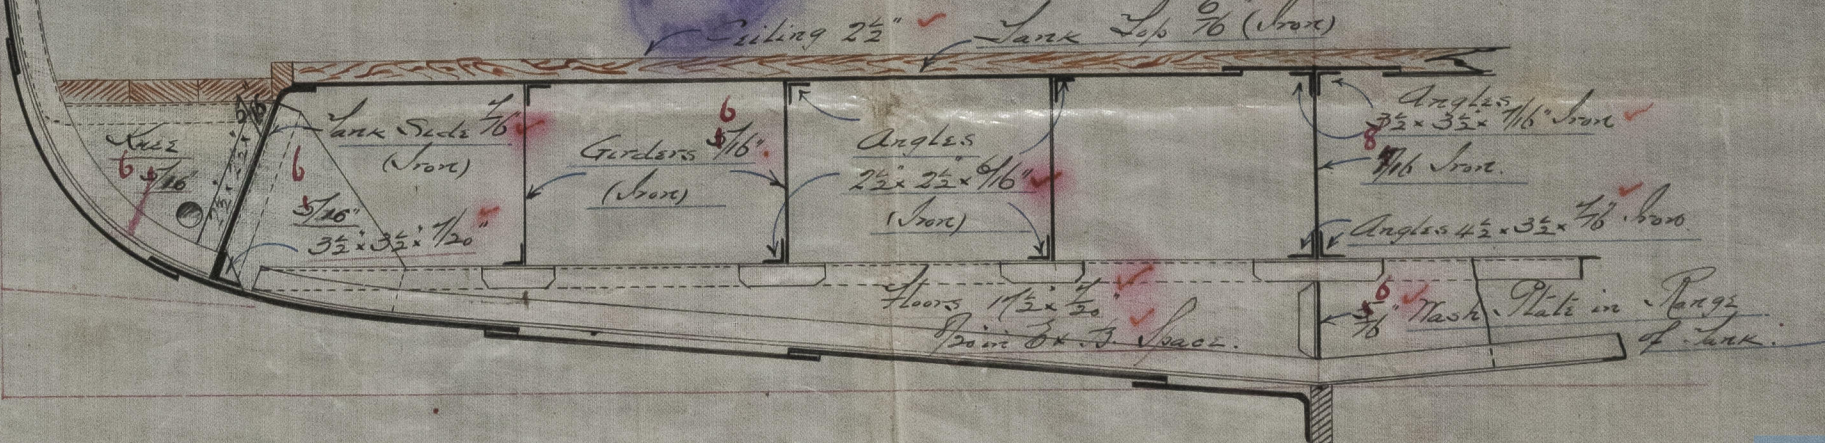 Ceiling 2½" ✓
Tank Top 6/16 (Iron)
Knee
6 5/16"
Tank Side 7/16" ✓
(Iron)
6
5/16"
3½ × 3½ × 7/20" ✓
Girders 6 5/16"
(Iron)
Angles
2½" × 2½" × 6/16" ✓
(Iron)
Angles
3½ × 3½ × 7/16" Iron ✓
8
/16 Iron.
Angles 4½ × 3½ × 7/16" Iron ✓
Floors 17½ × 7/20" ✓
/20 in E & B. Space. ✓
6 5/16" ✓ Wash Plate in Range
of Tank.